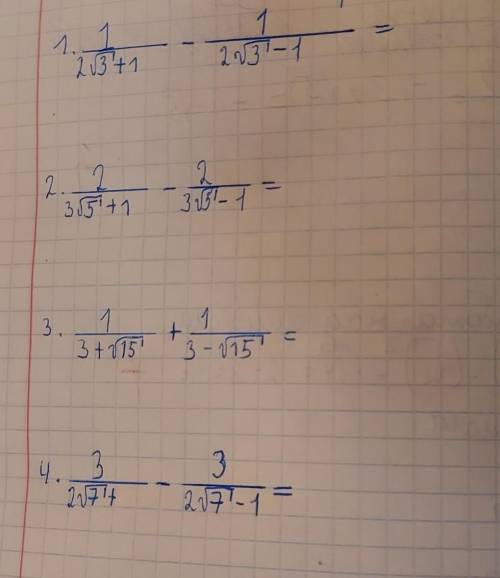 1. 1/(2√3+1) - 1/(2√3-1) =
2. 2/(3√5+1) - 2/(3√5-1) =
3. 1/(3+√15) + 1/(3-√15) =
4. 3/(2√7+) - 3/(2√7-1) =